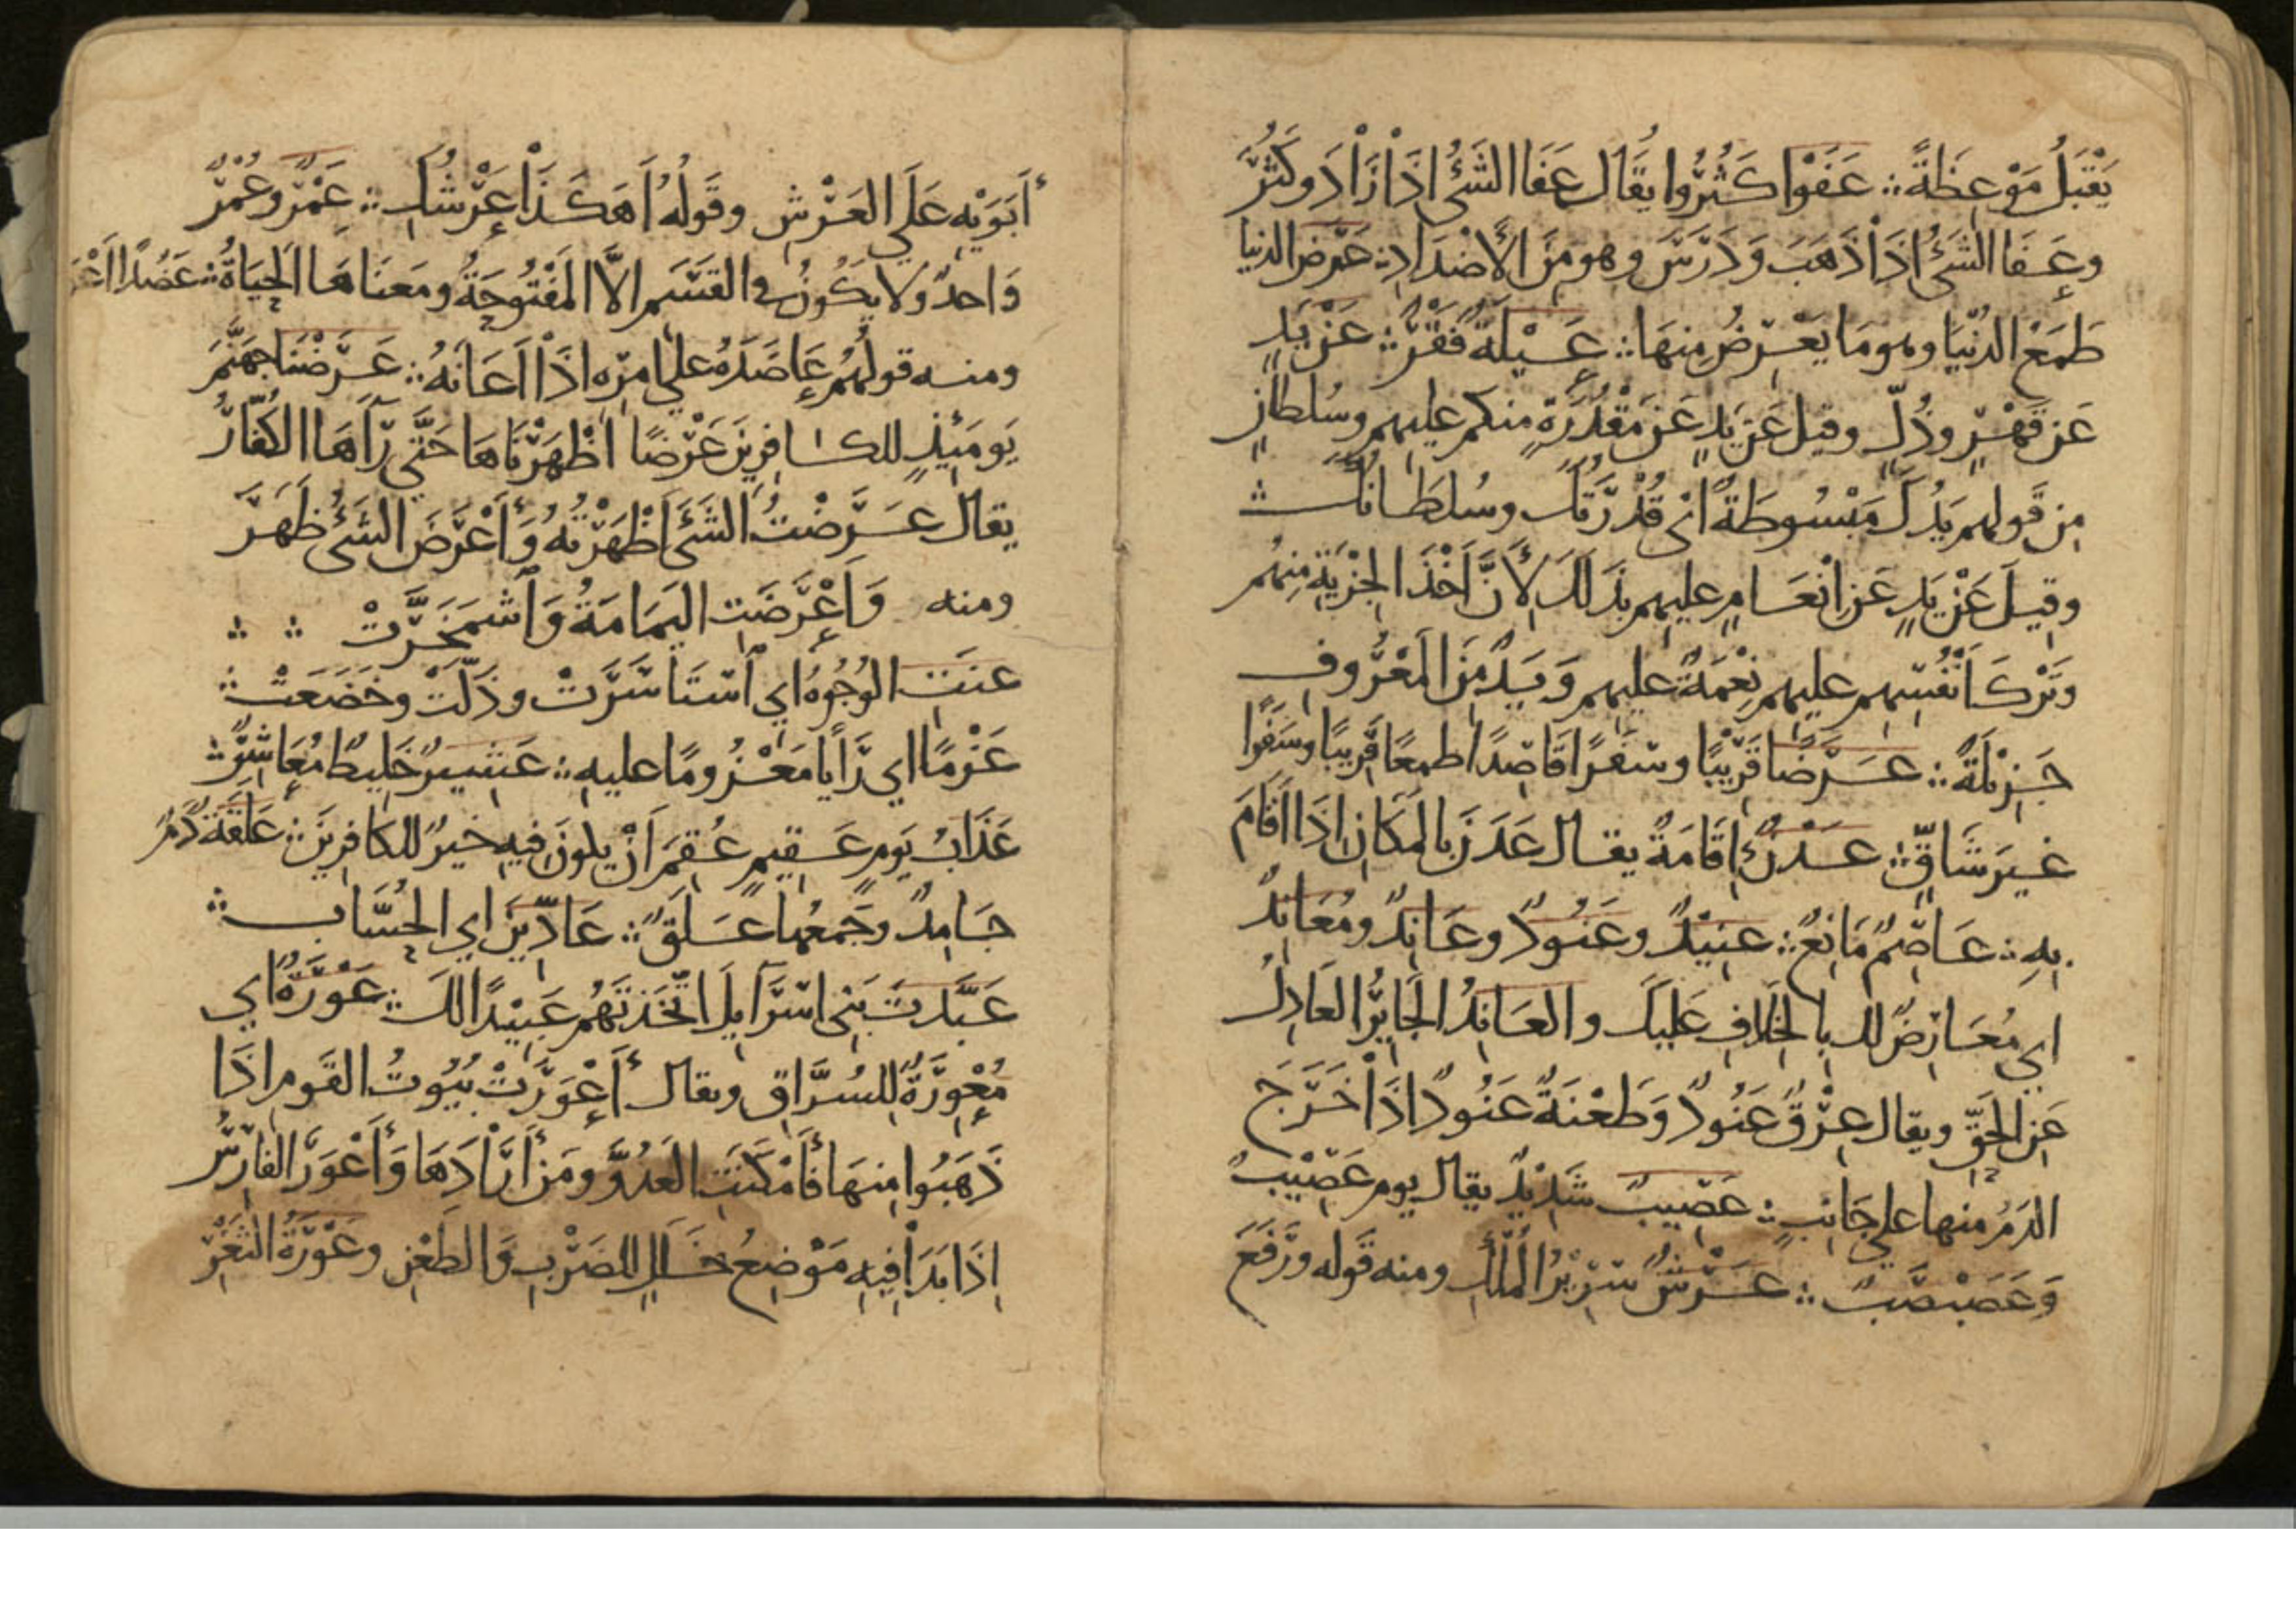 يَقْبَلُ مَوْعِظَةً ؞ عَفَوْا كَثُرُوا يُقَال عَفَا الشَّىُٔ اِذَا زَادَ وكَثُرَ
وعَفَا الشَىُٔ اِذَا ذَهَبَ وَدَرَسَ وهو مِنَ الأَضْدَادِ ؞ عَرَض الدنيا
طَمَعُ الدُنْيَا وهو مَا يَعْرِضُ مِنهَا ؞ عَيْلَةً فَقْرٌ ؞ عَنْ يَدٍ
عَن قَهْرٍ وذُلٍّ وقيل عَن يَدٍ عَن مَقْدُرَةٍ منكم عليهم وسُلطانٍ
مِن قَولهم يَدُكَ مَبْسُوطَةٌ اى قُدْرَتُكَ وسُلطَانُكَ ؞
وقِيلَ عَنْ يَدٍ عَن اِنْعَامٍ عليهم بذَلكَ لأَنَّ اَخْذَ الجِزْيَةِ مِنهُم
وَتَرْكَ اَنْفُسِهِم عليهم نِعْمَةٌ عليهم وَيَدٌ مِنَ المَعْرُوفِ
جَزِيْلَةٌ ؞ عَرَضًا قَرِيْبًا وسَفَرًا قَاصِدًا طمعًا قَرِيبًا وسَفَرًا
غيرَ شَاقٍّ ؞ عَدْنٍ اِقَامَةٌ يقال عَدَنَ بالمَكَانِ اِذَا اَقَامَ
بِهِ ؞ عَاصِمٌ مَانِعٌ ؞ عنِيْدٌ وعَنُودٌ وعَانِدٌ ومُعَانِدٌ
اي مُعَارِضٌ لك بالخِلَافِ عَلَيكَ والعَانِدُ الجَايِرُ العَادِلُ
عَنِ الحَقِّ ويقال عِرْقٌ عَنُودٌ وَطَعْنَةٌ عَنُودٌ اِذَا خَرَجَ
الدَمُ منها علي جَانِبٍ ؞ عَصِيبٌ شَدِيْدٌ يقال يوم عَصِيْبٌ
وَعَصَبْصَبٌ ؞ عَرْشٌ سَرِيْرُ المُلْكِ ومنه قَوله ورَفَعَ
أَبَوَيْهِ عَلَي العَرْشِ وقَولُهُ اَهَكَذَا عَرْشُكِ ؞ عَمْرٌ وعُمْرٌ
وَاحدٌ ولا يكُونُ في القَسَمِ الاَّ المَفْتُوحَةُ ومَعنَاهَا الحَيَاةُ ؞ عَضُدًا
ومنه قولهُم عَاضَدَهُ علي امرِه اِذَا اَعَانَهُ ؞ عَرَضْنَا جَهَنَّمَ
يَومَئِذٍ للكافِرِينَ عَرْضًا اظْهَرْنَاهَا حَتَّي رَآهَا الكُفَّارُ
يقال عَرَضْتُ الشَىَٔ اَظْهَرْتُهُ وَأَعْرَضَ الشَىُٔ ظَهَرَ
ومنه وَاَعْرَضَتِ اليَمَامَةُ وَاشْمَخَرَّتْ ؞ ؞
عنَتِ الوُجُوهُ اي اسْتَاسَرَتْ وذَلَّتْ وخَضَعَتْ ؞
عَزْمًا اي رَأيًا مَعْزُومًا عليهِ ؞ عَشِيرٌ خَلِيطٌ مُعَاشِرٌ ؞
عَذَابُ يَومٍ عَقِيمٍ عُقِمَ اَنْ يكونَ فِيهِ خيرٌ للكافِرِينَ ؞ عَلَقَةً دَمٌ
جَامِدٌ وجَمْعُها عَلَقٌ ؞ عَادِّيْنَ اي الحُسَّاب ؞
عَبَّدتَ بَنِى اسْرَآيِلَ اتَّخَذتَهُم عَبِيْدًا لكَ ؞ عَوْرَةٌ اي
مُعْوِرَةٌ لِلسُرَّاقِ ويقال أَعْوَرَتْ بُيُوتُ القَومِ اِذَا
ذَهَبُوا مِنهَا فَأَمْكَنَتِ العَدُوَّ ومَن أَرَادَهَا وَأَعْوَرَ الفارِسُ
اِذَا بَدَا فِيهِ مَوْضِعُ خَلَلٍ للضَرْبِ وَالطَعْنِ وعَوْرَةُ الثَغْرِ